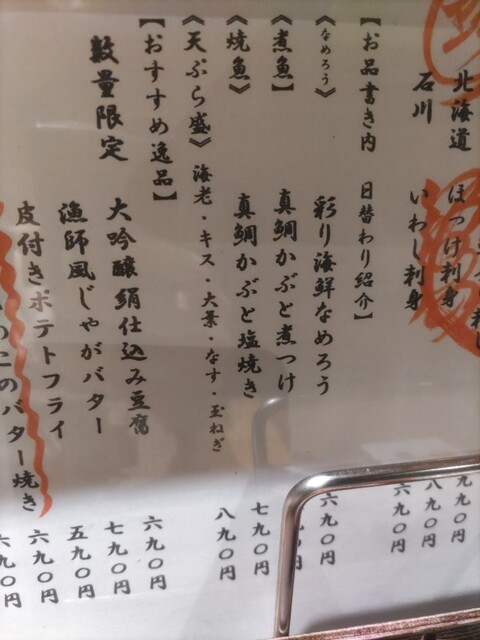 北海道 ほっけ刺身 八九〇円
石川 いわし刺身 六九〇円
【お品書き内 日替わり紹介】
《なめろう》 彩り海鮮なめろう 六九〇円
《煮魚】 真鯛かぶと煮つけ 九〇円
《焼魚》 真鯛かぶと塩焼き 七九〇円
《天ぷら盛》 海老・キス・大葉・なす・玉ねぎ 八九〇円
【おすすめ逸品】
数量限定 大吟醸絹仕込み豆腐 六九〇円
漁師風じゃがバター 七九〇円
皮付きポテトフライ 五九〇円
のこのバター焼き 六九〇円
六九〇円